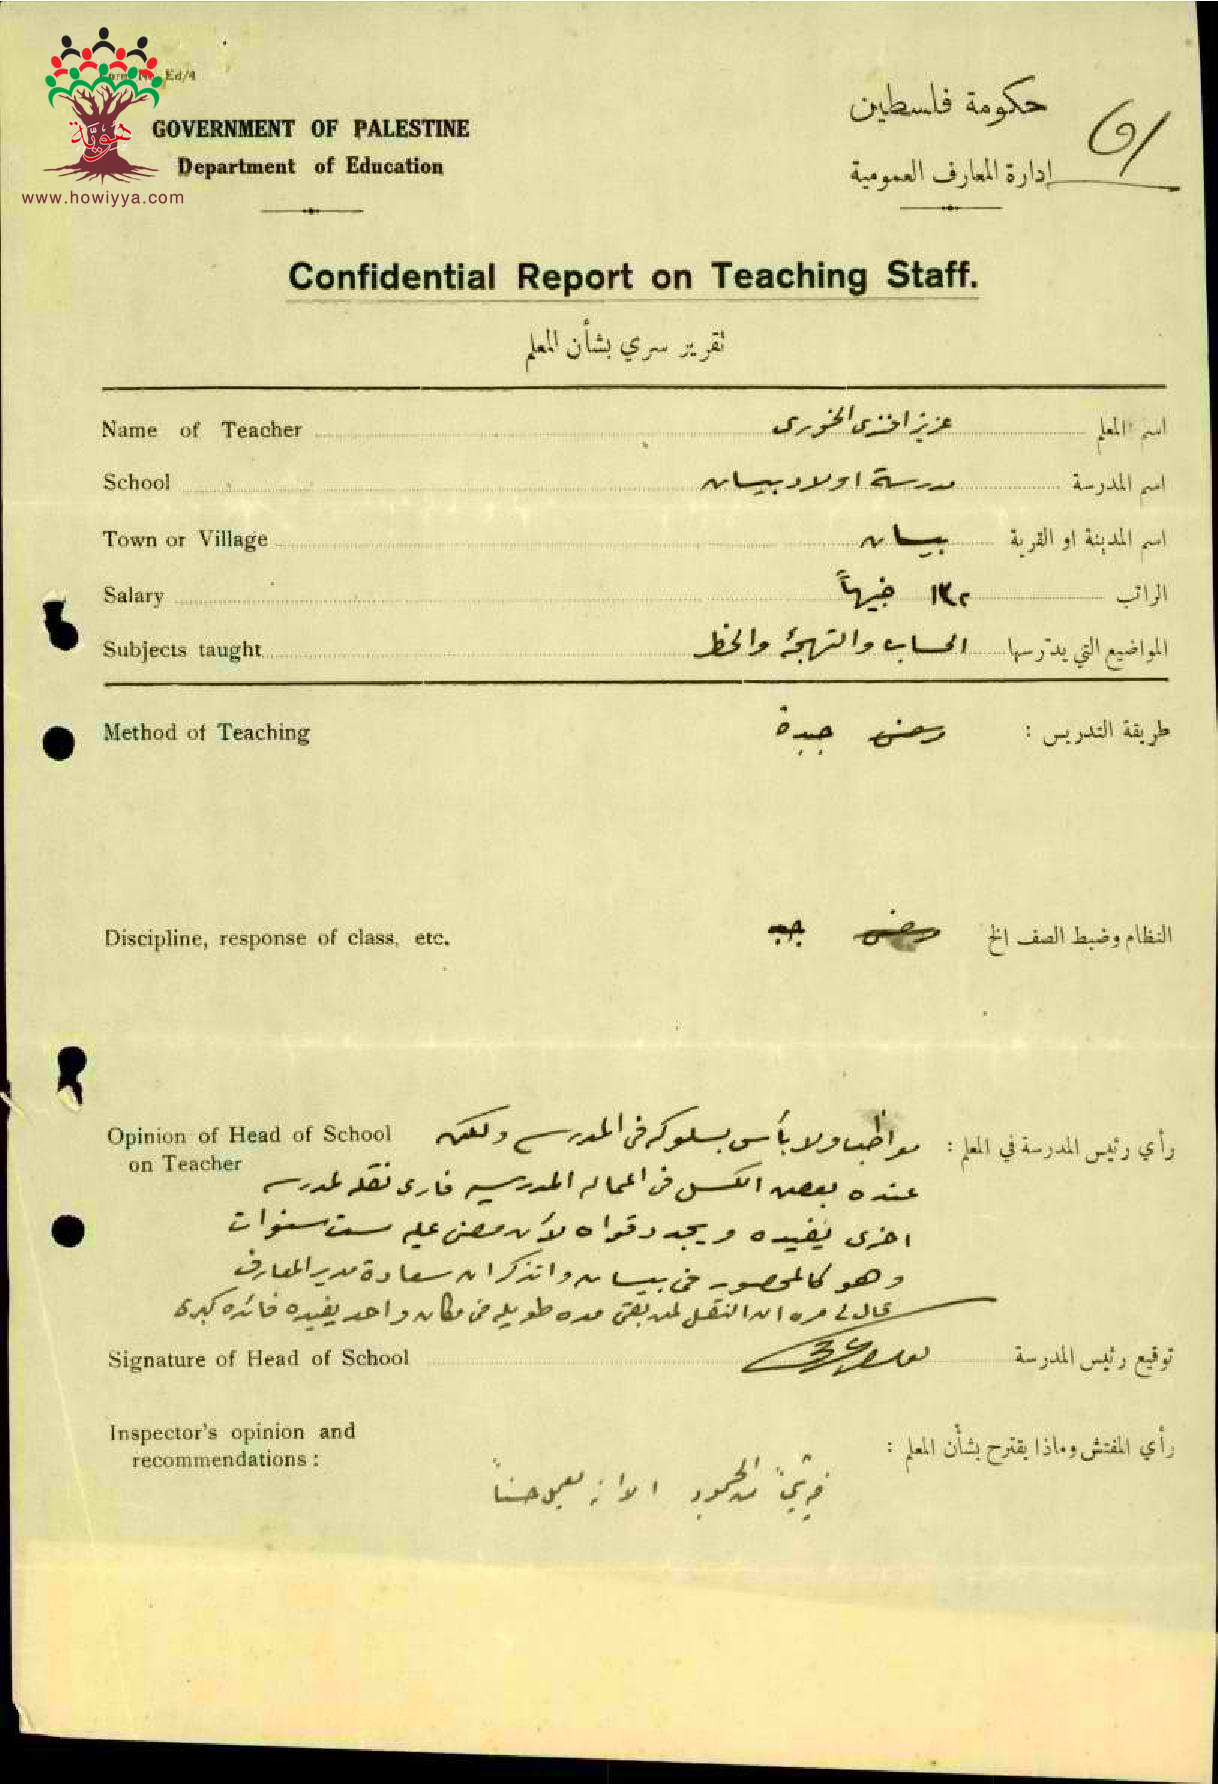 Form No. Ed/4
هوية
www.howiyya.com
GOVERNMENT OF PALESTINE
Department of Education
حكومة فلسطين
إدارة المعارف العمومية
Confidential Report on Teaching Staff.
تقرير سري بشأن المعلم
Name of Teacher عزيز افندي الخوري اسم المعلم
School مدرسة اولاد بيسان اسم المدرسة
Town or Village بيسان اسم المدينة او القرية
Salary ١٣٢ جنيهاً الراتب
Subjects taught الحساب والتهجئة والخط المواضيع التي يدرسها
Method of Teaching جيدة طريقة التدريس :
Discipline, response of class, etc. جيد النظام وضبط الصف الخ
Opinion of Head of School on Teacher
رأي رئيس المدرسة في المعلم : مواظب ولا بأس بسلوكه في المدرسة ولكن
عنده بعض الكسل في اعماله المدرسية فارى نقله لمدرسة
اخرى يفيده ويجدد قواه لأن مضى عليه ست سنوات
وهو كالمحصور في بيسان واتذكر ان سعادة مدير المعارف
قال لي مره ان النقل لمن بقي مده طويله في مكان واحد يفيده فائده كبرى
Signature of Head of School توقيع رئيس المدرسة
Inspector's opinion and recommendations :
رأي المفتش وماذا يقترح بشأن المعلم :
من الجمود الا انه يعمل حسناً